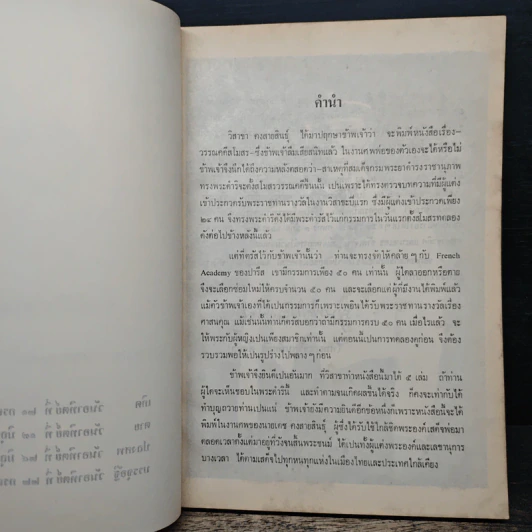 คำนำ
วิสาขา คงสายสินธุ์ ได้มาปฤกษาข้าพเจ้าว่า จะพิมพ์หนังสือเรื่อง-
วรรณคดีสโมสร-ซึ่งข้าพเจ้าลืมเสียสนิทแล้ว ในงานศพพ่อของตัวเองจะได้หรือไม่
ข้าพเจ้าจึงนึกได้ถึงความหลังตลอดว่า-สาเหตุที่สมเด็จกรมพระยาดำรงราชานุภาพ
ทรงพระดำริจะตั้งสโมสรวรรณคดีขึ้นนั้น เป็นเพราะได้ทรงตรวจบทความที่มีผู้แต่ง
เข้าประกวดรับพระราชทานรางวัลในงานวิสาขะปีแรก ซึ่งมีผู้แต่งเข้าประกวดเพียง
๒๔ คน จึงทรงพระดำริดังได้มีพระดำรัสไว้แก่กรรมการในวันแรกตั้งสโมสรทดลอง
ดังต่อไปข้างหลังนี้แล้ว
แต่ที่ตรัสไว้กับข้าพเจ้านั้นว่า ท่านจะทรงจัดให้คล้าย ๆ กับ French
Academy ของปารีส เรามีกรรมการเพียง ๕๐ คน เท่านั้น ผู้ใดลาออกหรือตาย
จึงจะเลือกซ่อมใหม่ให้ครบจำนวน ๕๐ คน และจะเลือกแต่ผู้ที่มีงานได้พิมพ์แล้ว
แม้ตัวข้าพเจ้าเองที่ได้เปนกรรมการก็เพราะเผอิญได้รับพระราชทานรางวัลเรื่อง
ศาสนคุณ แม้เช่นนั้นท่านก็ตรัสบอกว่าถ้ามีกรรมการครบ ๕๐ คน เมื่อไรแล้ว จะ
ให้พระกับผู้หญิงเป็นเพียงสมาชิกเท่านั้น แต่ตอนนี้เป็นการทดลองดูก่อน จึงต้อง
รวบรวมพอให้เป็นรูปร่างไปพลาง ๆ ก่อน
ข้าพเจ้าจึงยินดีเป็นอันมาก ที่วิสาขาหาหนังสือนี้มาได้ ๕ เล่ม ถ้าท่าน
ผู้ใดจะเห็นชอบในพระดำรินี้ และทำตามจนเกิดผลขึ้นได้จริง ก็คงจะเท่ากับได้
ทำบุญถวายท่านเป็นแน่ ข้าพเจ้ายังมีความยินดีอีกข้อหนึ่งก็เพราะหนังสือนี้จะได้
พิมพ์ในงานศพของนายเคช คงสายสินธุ์ ผู้ซึ่งได้รับใช้ใกล้ชิดพระองค์เสด็จพ่อมา
ตลอดเวลาตั้งแต่มาอยู่ที่วังจนสิ้นพระชนม์ ได้เป็นทั้งผู้แต่งพระองค์และเลขานุการ
บางเวลา ได้ตามเสด็จไปทุกหนทุกแห่งในเมืองไทยและประเทศใกล้เคียง